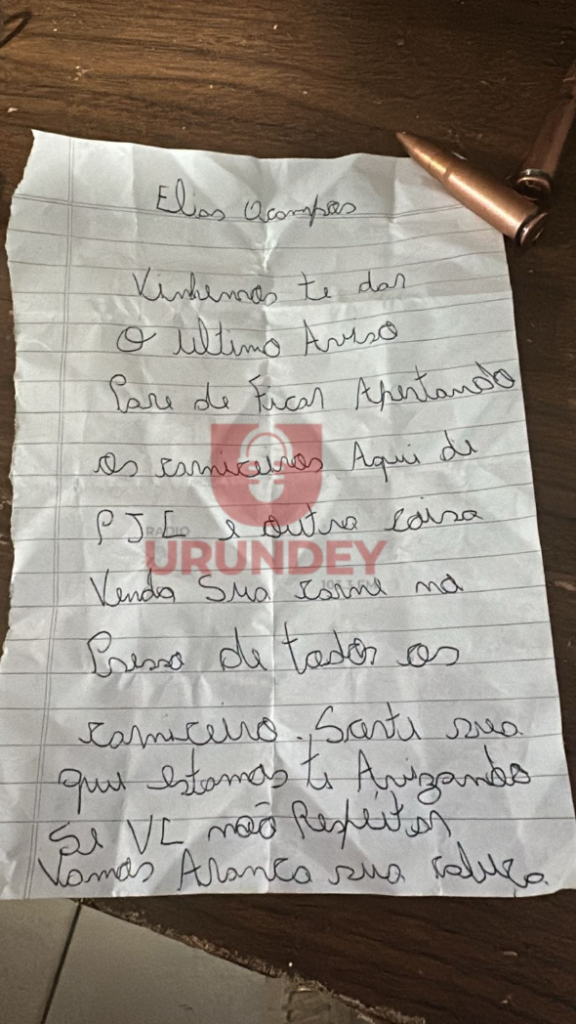 Elias Ocampos
Vinhemos te dar
O ultimo Aviso
Pare de Ficar Apertando
os carniceiros Aqui de
PJC e outra coisa
RADIO
URUNDEY
Venda Sua carne na
Presso de todos os
carniceiro. Sorti sua
que estamos te Avizando
Se VC não Respeitar
Vamos Aranca sua cabeça